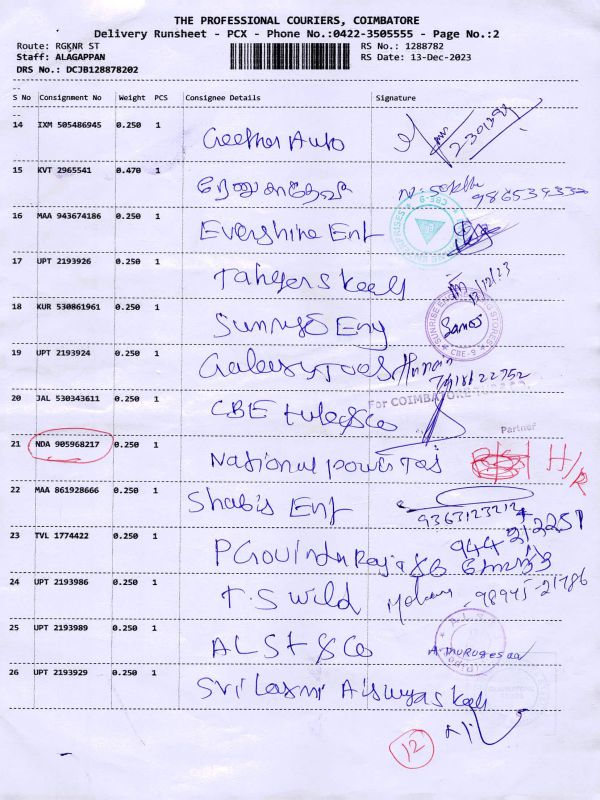 THE PROFESSIONAL COURIERS, COIMBATORE
Delivery Runsheet - PCX - Phone No.:0422-3505555 - Page No.:2
Route: RGKNR ST
RS No.: 1288782
Staff: ALAGAPPAN
RS Date: 13-Dec-2023
DRS No.: DCJB128878202
S No Consignment No Weight PCS Consignee Details Signature
14 IXM 505486945 0.250 1 Geetha Auto
15 KVT 2965541 0.470 1 ரேணுகாதேவி
16 MAA 943674186 0.250 1 Evershine Ent
17 UPT 2193926 0.250 1
12/12/23
18 KUR 530861961 0.250 1 Eng
CBE-9
19 UPT 2193924 0.250 1 Galaxy Tools
20 JAL 530343611 0.250 1 CBE
For COIMBATORE
Partner
21 NDA 905968217 0.250 1 National power H/R
22 MAA 861928666 0.250 1 Shabis Ent
9363123212
23 TVL 1774422 0.250 1 P Govindaraja & Co
24 UPT 2193986 0.250 1 T.S Wild 98945-21786
25 UPT 2193989 0.250 1 ALST & Co A. Murugesan
26 UPT 2193929 0.250 1 Sri Laxmi
12